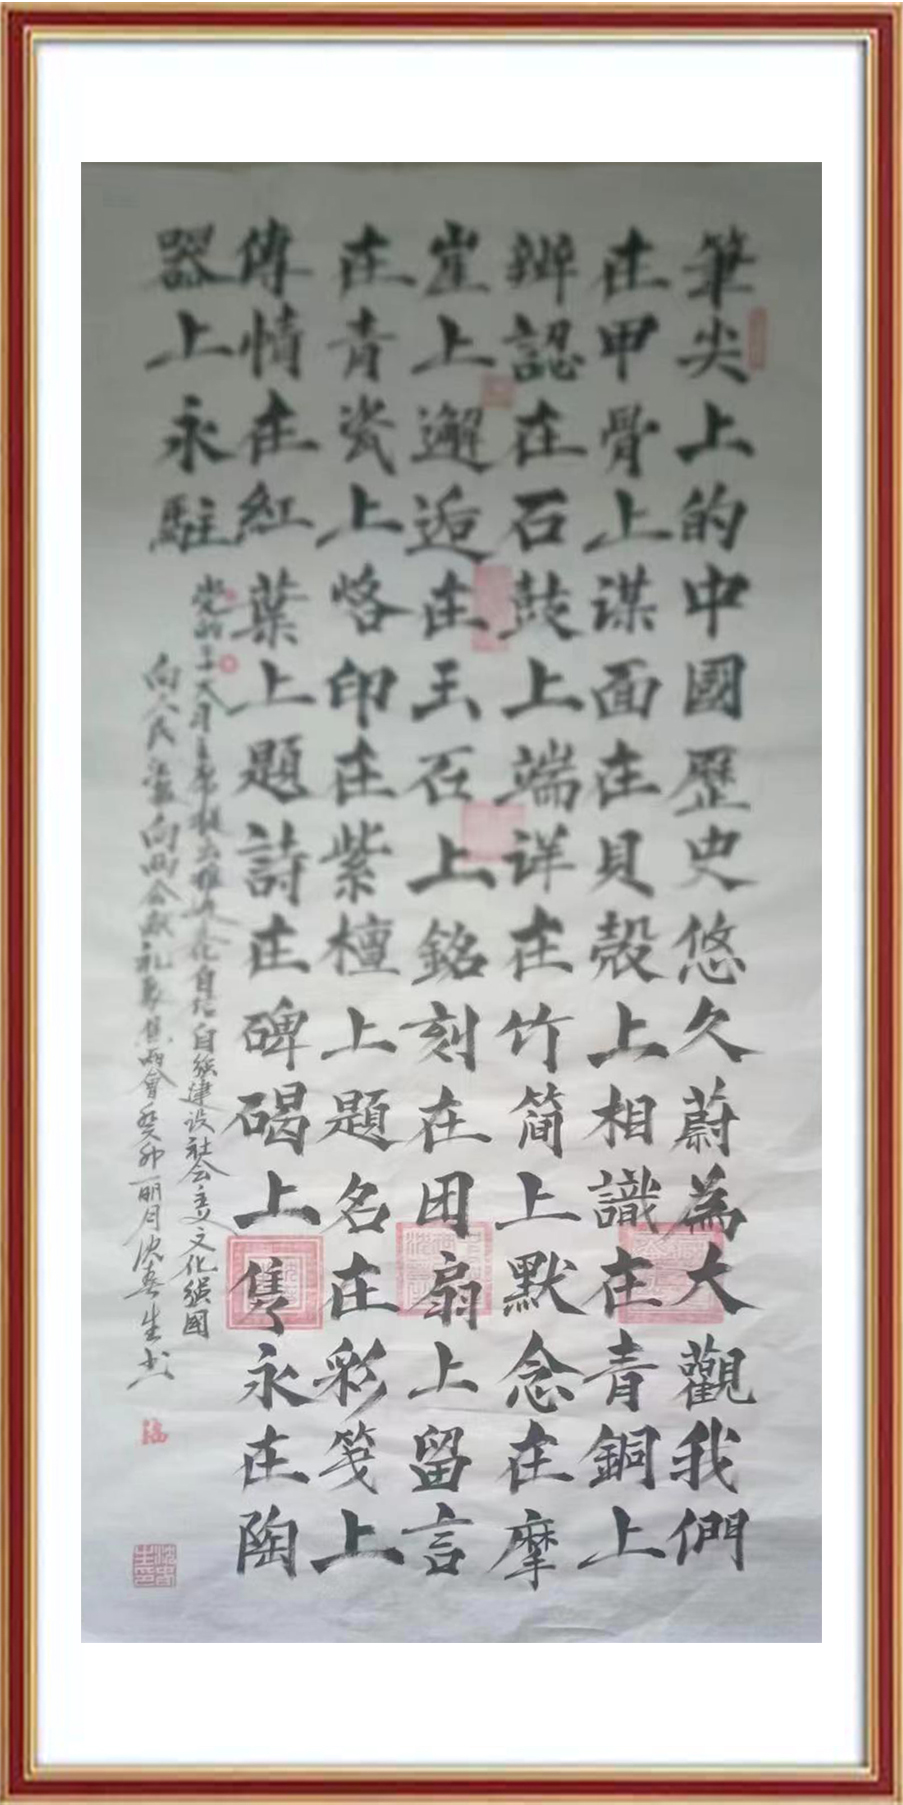 筆尖上的中國歷史悠久蔚為大觀我們
在甲骨上谋面在貝殼上相識在青銅上
辨認在石鼓上端详在竹简上默念在摩
崖上邂逅在玉石上銘刻在团扇上留言
在青瓷上烙印在紫檀上題名在彩笺上
傳情在紅葉上題詩在碑碣上雋永在陶
器上永駐
党的二十大习主席提出推进文化自信自强建设社会主义文化强國
向人民汇报向两会献礼聚焦两會癸卯明月沈春生书